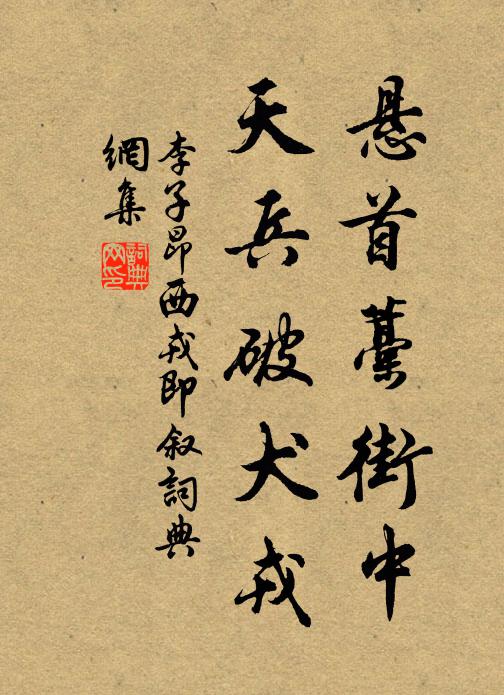 悬首藁街中
天兵破犬戎
李子昂西戎即叙詞典
網集
詞典網印